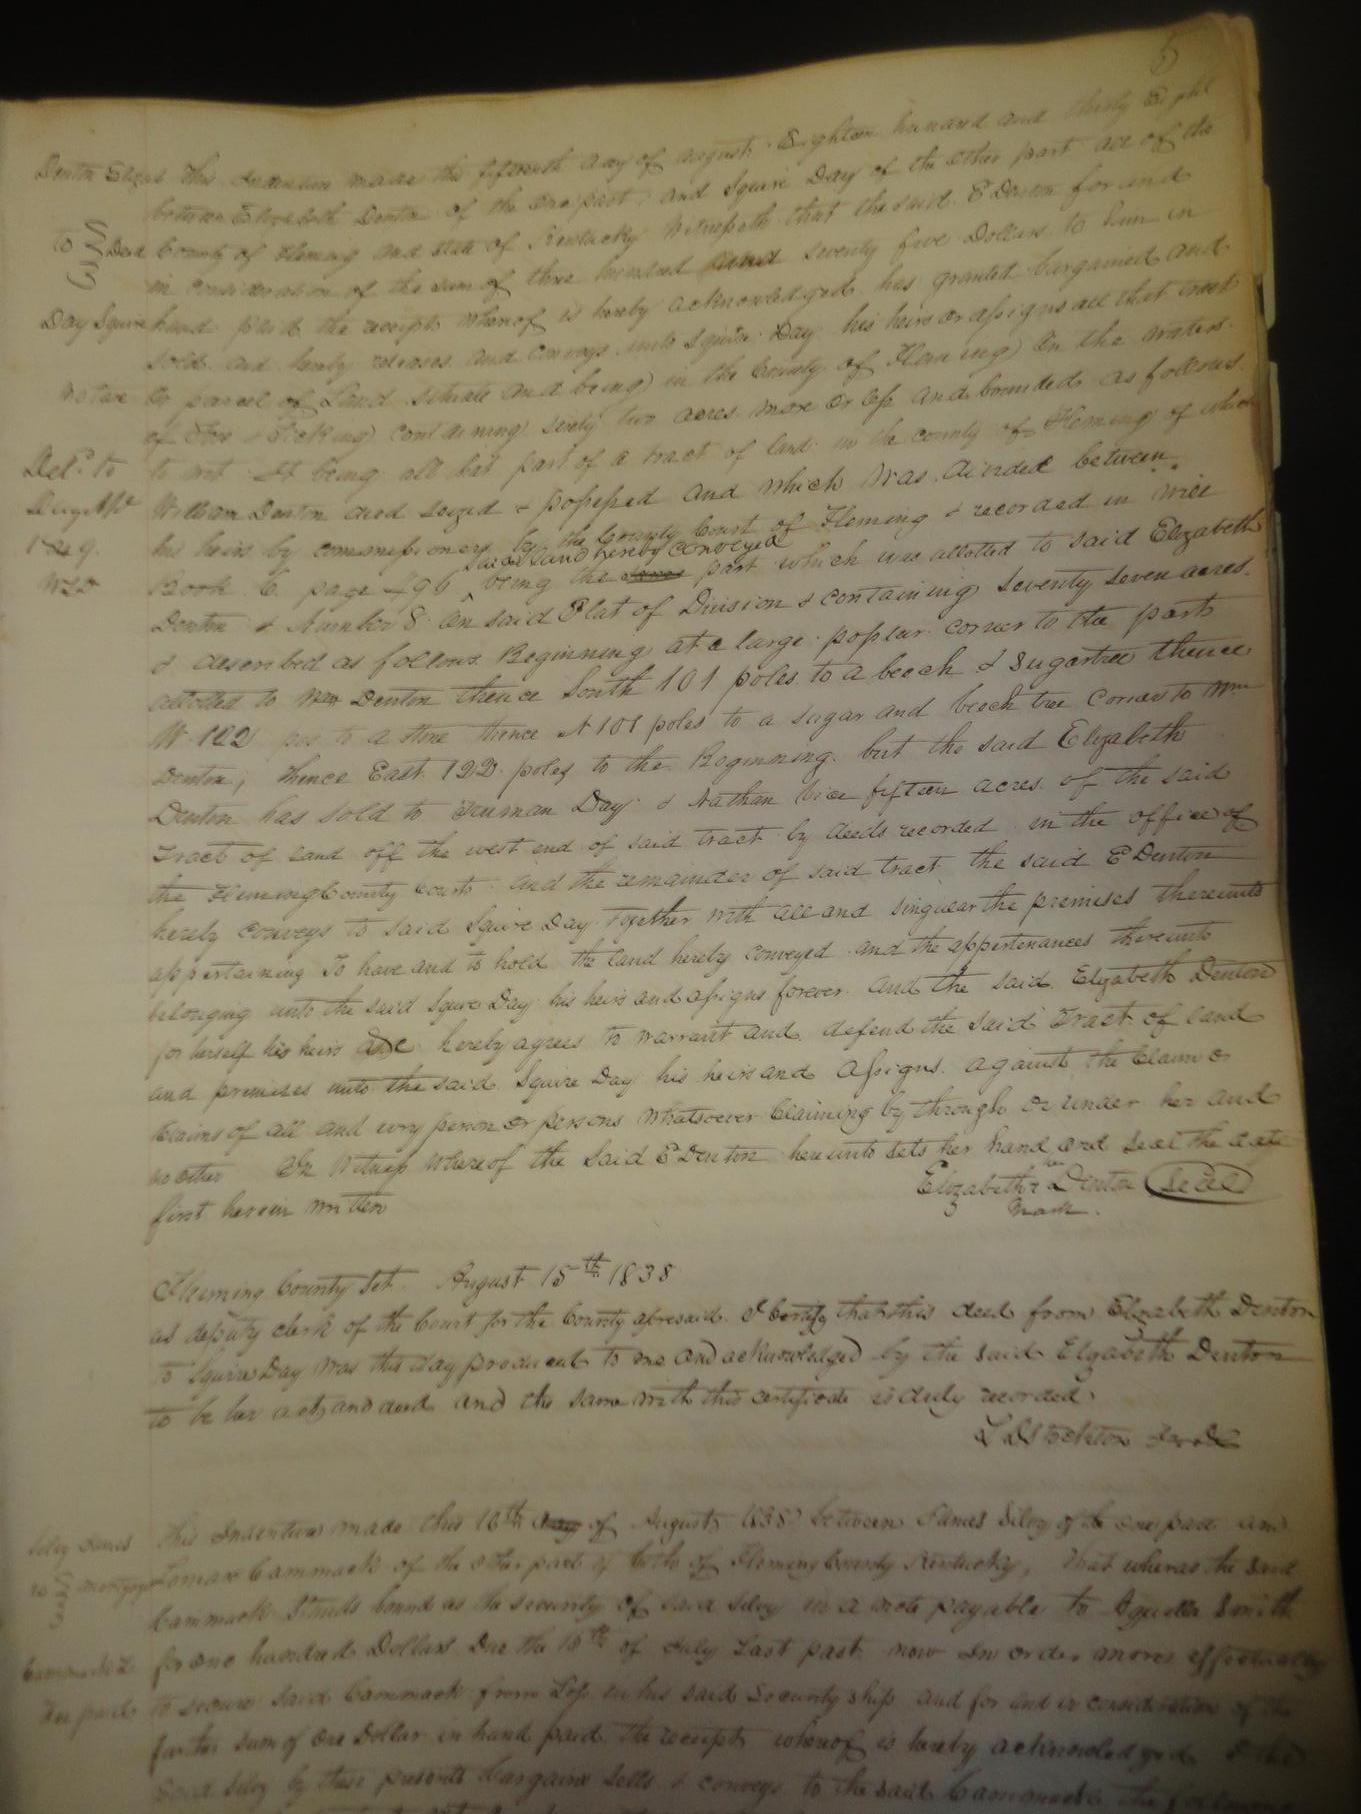 5
Denton Elizath This Indenture made the fifteenth day of august Eighteen hundred and thirty Eight
between Elizabeth Denton of the one part and Squire Day of the other part all of the
to Deed County of Fleming and state of Kentucky Witnesseth that the said E Denton for and
in consideration of the sum of three hundred and seventy five Dollars to him in
Day Squire hand paid the receipt whereof is hereby acknowledged has granted bargained and
sold and hereby releases and conveys unto Squire Day his heirs or assigns all that tract
or parcel of Land situate and being in the County of Fleming On the waters
of Fox & Licking containing sixty two acres more or less and bounded as follows
Deld. to to wit It being all that part of a tract of land in the county of Fleming of which
William Denton died seized & possessed and which was divided between
1849. his heirs by commissioners by the County Court of Fleming & recorded in will
said land hereby conveyed
Book E page 496 being the part which was allotted to said Elizabeth
Denton & Number 8 on said Plat of Division & containing seventy seven acres
& described as follows Beginning at a large poplar corner to the part
allotted to Wm Denton thence South 101 poles to a beech & sugartree thence
W 122 pos to a stone thence N 101 poles to a sugar and beech tree Corner to Wm
Denton, thence East 122 poles to the Beginning but the said Elizabeth
Denton has sold to Truman Day & Nathan fifteen acres of the said
Tract of land off the west end of said tract by deeds recorded in the office of
the Fleming County Court and the remainder of said tract the said E Denton
hereby conveys to said Squire Day Together with all and singular the premises thereunto
appertaining To have and to hold the land hereby conveyed and the appertenances thereunto
belonging unto the said Squire Day his heirs and assigns forever and the said Elizabeth Denton
for herself his heirs hereby agrees to warrant and defend the said Tract of land
and premises unto the said Squire Day his heirs and Assigns against the Claim or
Claims of all and evry person or persons whatsoever Claiming by through or under her and
no other In Witness whereof the said E Denton hereunto sets her hand and seal the date
first herein written
her
Elizabeth x Denton Seal
mark
Fleming County Sct. August 15th 1838
as deputy clerk of the Court for the County aforesaid I Certify that this deed from Elizabeth Denton
to Squire Day was this day produced to me and acknowledged by the said Elizabeth Denton
to be her act and deed and the same with this certificate is duly recorded
L D Stockton
Silvy James This Indenture made this 16th day of August 1838 between James Silvy of the one part and
to mortgage Lomax Cammack of the other part of both of Fleming County Kentucky, That whereas the said
Cammack Stands bound as the security of said Silvy in a note payable to Aquilla Smith
Cammack L for one hundred Dollars Due the 16th of July Last past now In order more effectually
to secure said Cammack from Loss in his said Security ship and for and in consideration of the
further sum of One Dollar in hand paid the receipt whereof is hereby acknowledged & the
said Silvy by these presents bargains sells & conveys to the said Cammack the following